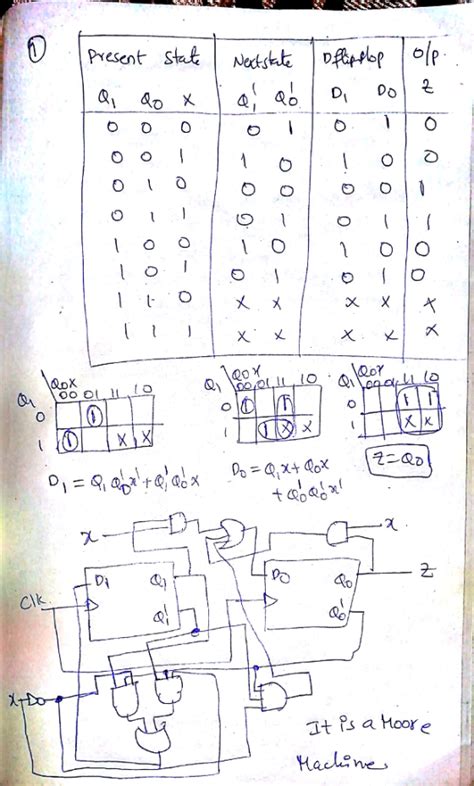 1
Present State | Next state | D flipflop | O/p.
Q1 Q0 X | Q1' Q0' | D1 D0 | Z
0 0 0 | 0 1 | 0 1 | 0
0 0 1 | 1 0 | 1 0 | 0
0 1 0 | 0 0 | 0 0 | 1
0 1 1 | 0 1 | 0 1 | 1
1 0 0 | 1 0 | 1 0 | 0
1 0 1 | 0 1 | 0 1 | 0
1 1 0 | x x | x x | x
1 1 1 | x x | x x | x
Q1 \ Q0X 00 01 11 10
0 1
1 1 x x
Q1 \ Q0X 00 01 11 10
0 1 1
1 1 x x
Q1 \ Q0X 00 01 11 10
0 1 1
1 x x
D1 = Q1 Q0' x' + Q1' Q0' x
D0 = Q1x + Q0x
+ Q0' Q0' x'
Z = Q0
x
x
D1 Q1
D0 Q0
Z
Clk
Q1'
Q0'
x
It is a Moore
Machine